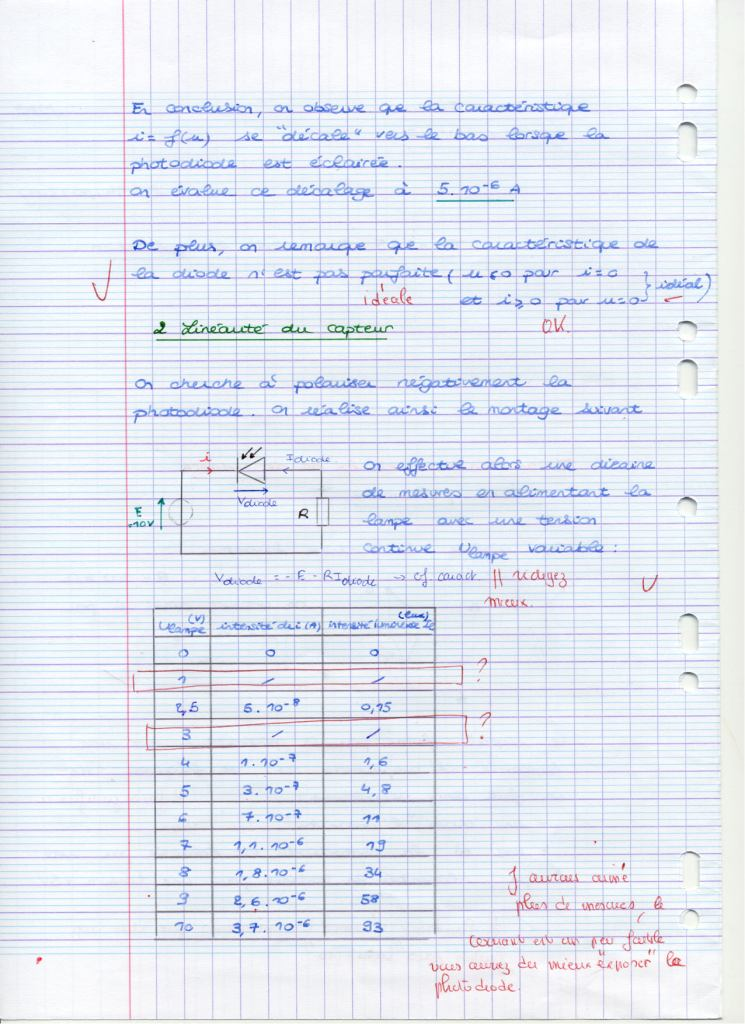 En conclusion, on observe que la caractéristique
i = f(u) se "décale" vers le bas lorsque la
photodiode est éclairée.
on évalue ce décalage à 5.10⁻⁶ A
De plus, on remarque que la caractéristique de
la diode n'est pas parfaite ( u ≤ 0 pour i = 0 } idéal)
idéale et i ≥ 0 pour u = 0
2 Linéarité du capteur OK.
On cherche à polariser négativement la
photodiode. On réalise ainsi le montage suivant
i Idiode
Vdiode
E
-10V
R
On effectue alors une dizaine
de mesures en alimentant la
lampe avec une tension
continue Ulampe variable :
Vdiode = - E - RIdiode → cf caract. || rédigez
mieux.
Ulampe (V) intensité de i (A) intensité lumineuse Ie (lux)
0 0 0
1 / / ?
2,5 5.10⁻⁸ 0,15
3 / / ?
4 1.10⁻⁷ 1,6
5 3.10⁻⁷ 4,8
6 7.10⁻⁷ 11
7 1,1.10⁻⁶ 19
8 1,8.10⁻⁶ 34
9 2,6.10⁻⁶ 58
10 3,7.10⁻⁶ 93
J'aurais aimé
plus de mesures, le
courant est un peu faible
vous auriez du mieux "exposer" la
photodiode.